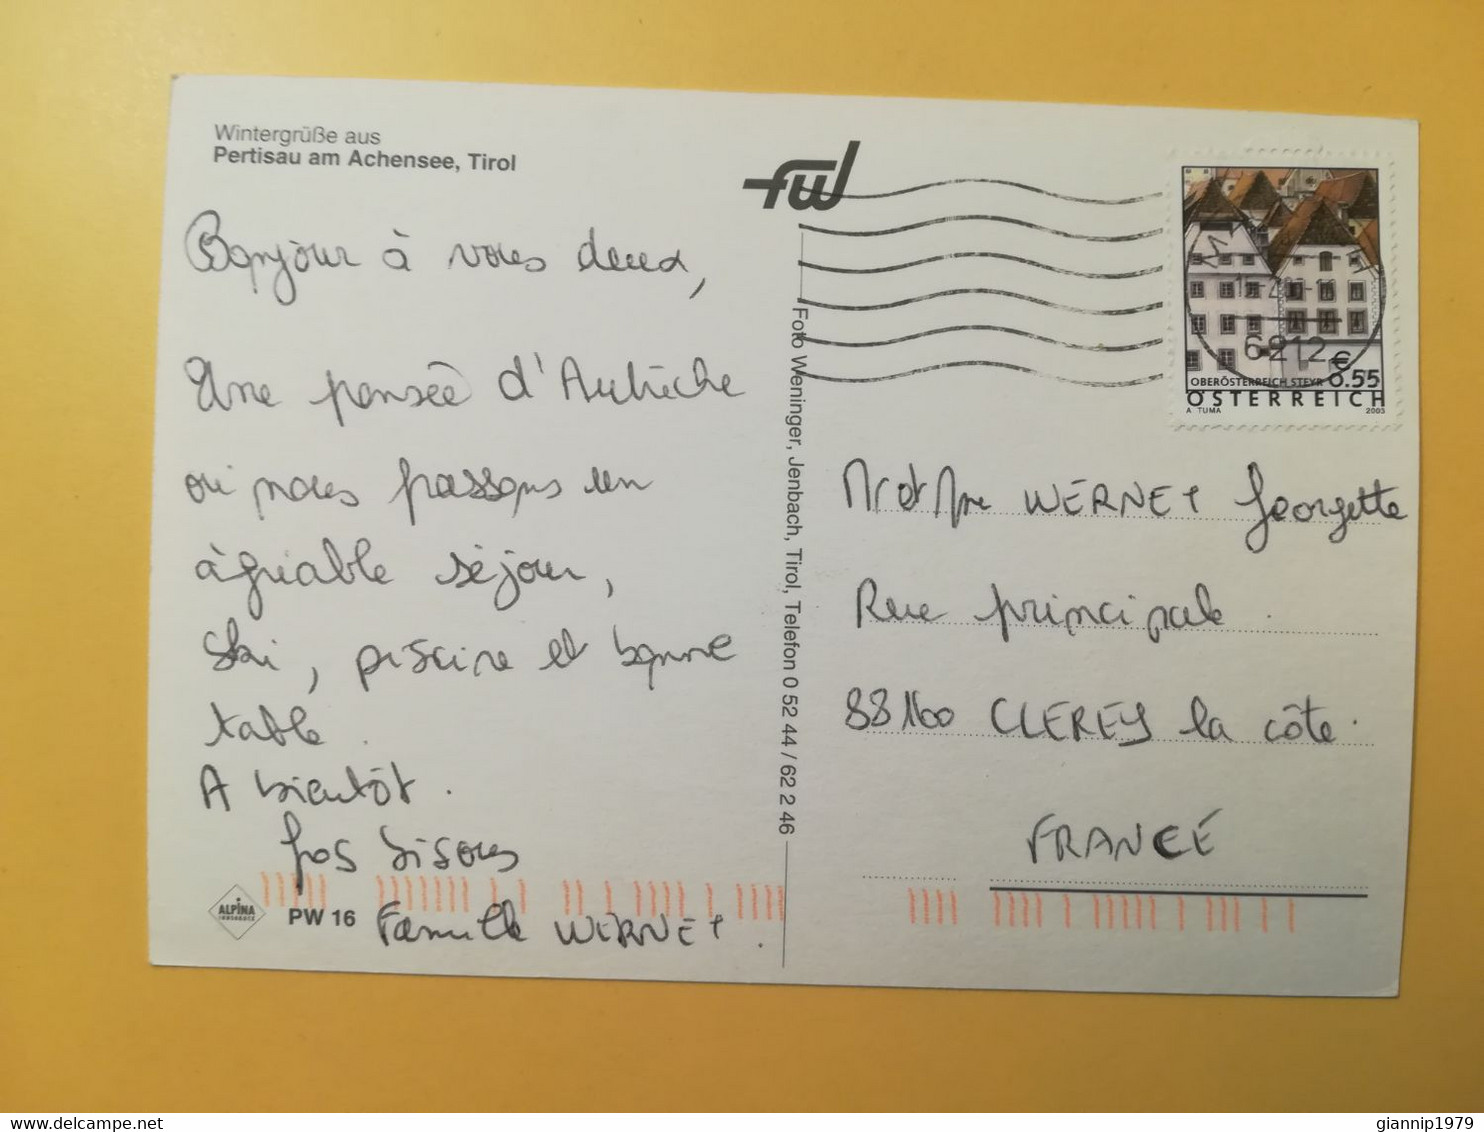 Wintergrüße aus
Pertisau am Achensee, Tirol
fwl
Bonjour à vous deux,
Une pensée d'Autriche
où nous passons un
agréable séjour,
Ski, piscine et bonne
table.
A bientôt.
Gros bisous
Famille WERNET.
ALPINA
INNSBRUCK
PW 16
Foto Weninger, Jenbach, Tirol, Telefon 0 52 44 / 62 2 46
6212
€
0.55
OBERÖSTERREICH STEYR
ÖSTERREICH
A. TUMA
2003
Mr et Mme WERNET Georgette
Rue principale.
88160 CLEREY la côte.
FRANCE
giannip1979